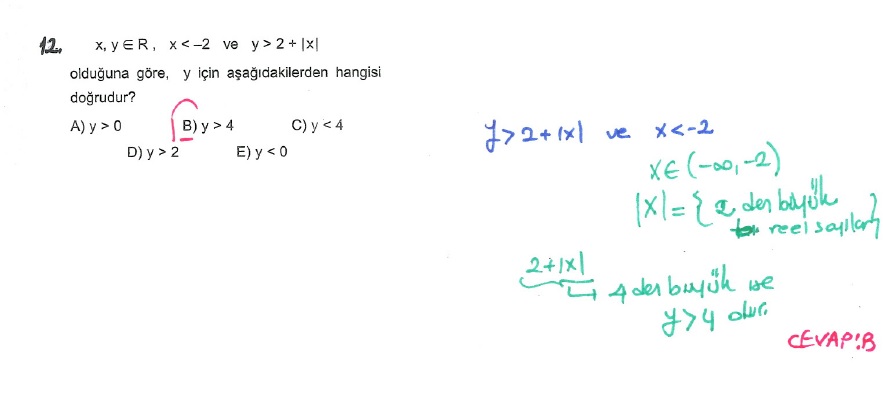 12. x, y ∈ R, x < –2 ve y > 2 + |x|
olduğuna göre, y için aşağıdakilerden hangisi
doğrudur?
A) y > 0 B) y > 4 C) y < 4
D) y > 2 E) y < 0
y > 2 + |x| ve x < -2
x ∈ (-∞, -2)
|x| = { 2 den büyük
reel sayılar }
2 + |x|
4 den büyük ise
y > 4 olur.
CEVAP: B